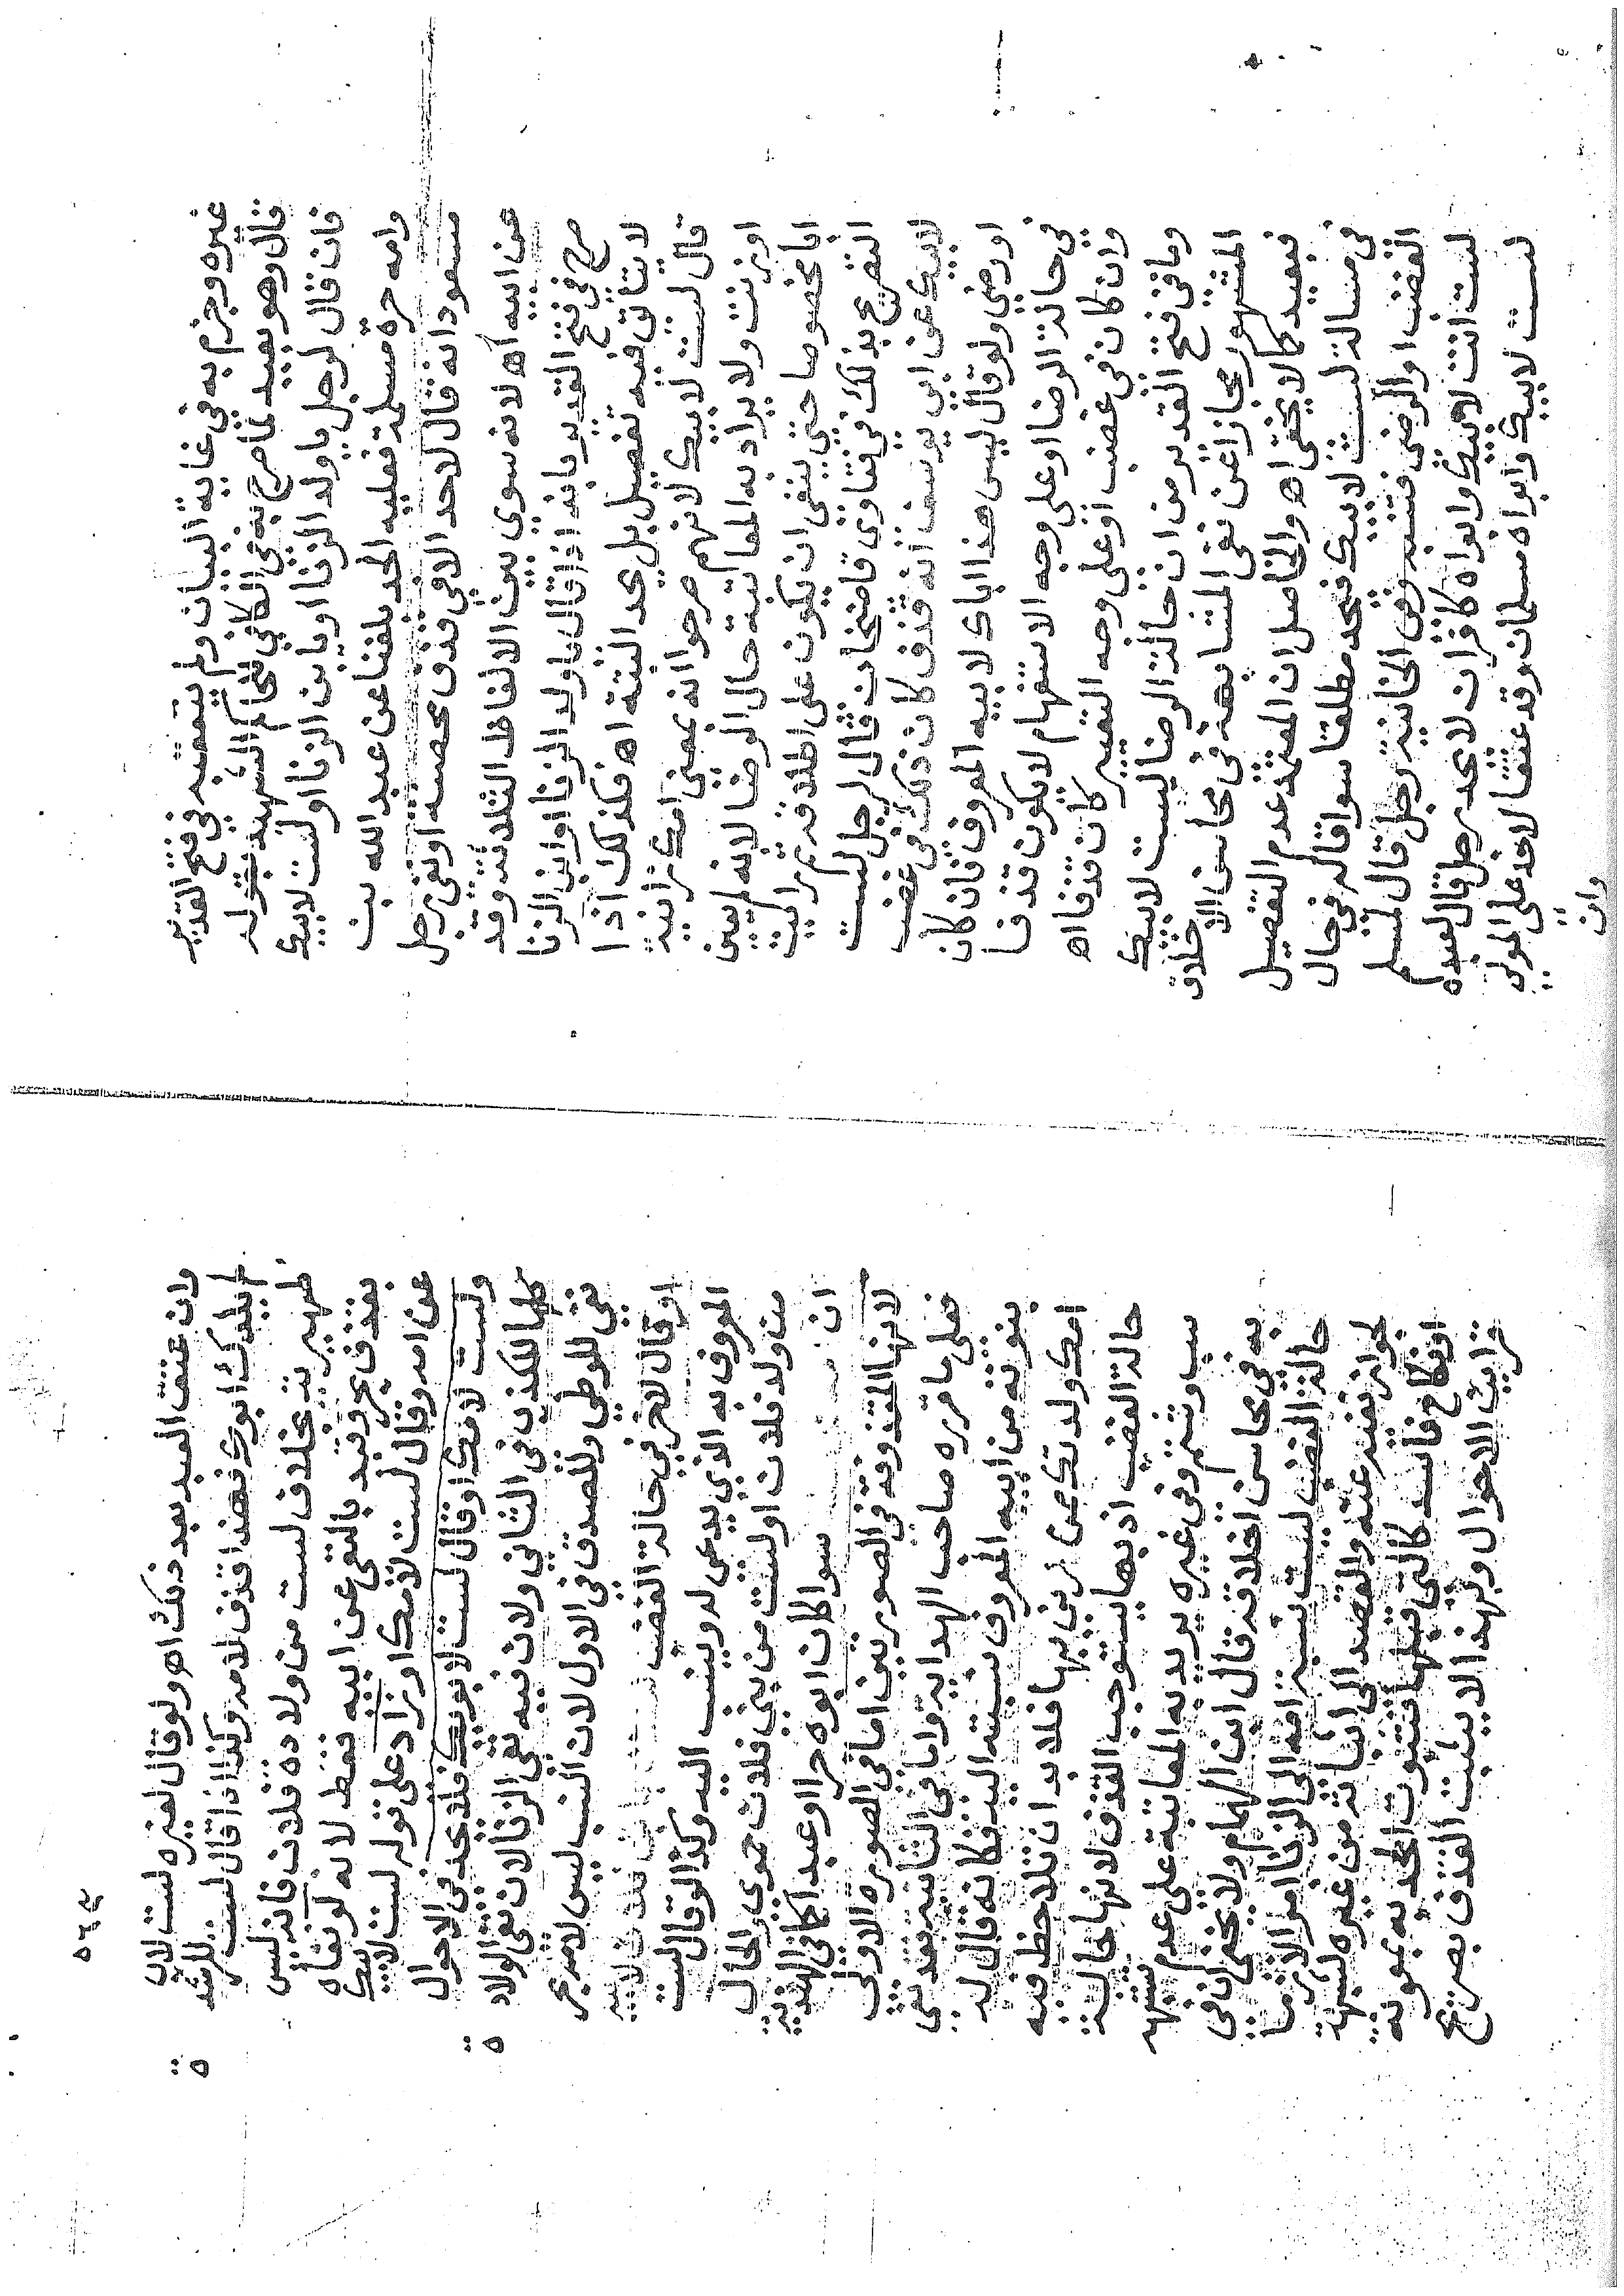 غيره وجزم به في غاية البيان ولم يتعقبه في فتح القدير
قال وهو بعيد لما صرح به في الكافي للحاكم الشهيد بقوله
فان قال لرجل يا ولد الزنا او يا ابن الزنا او لست لابيك
وامه حرة مسلمة فعليه الحد بلغنا عن عبد الله بن
مسعود انه قال لاحد الا في قذف محصنه او نفى رجل
عن ابيه اه لانه سوى بين الالفاظ الثلاثة وقد
صرح في فتح القدير بانه اذا قال يا ولد الزنا او ابن الزنا
لا يتاتى فيه تفصيل بل يحد البتة اه فكذلك اذا
قال لست لابيك لانهم صرحوا انه بمعنى امك زانية
او زنت ولا يراد به المعاتبة حال الرضا لانه لم يعين
ابا مخصوصا حتى ينفى ان يكون على اخلاقه ثم رايت
التصريح بذلك في فتاوى قاضيخان فقال لرجل لست
لابيك عن ابي يوسف انه قذف كان ذلك في غضب
او رضى ولو قال ليس هذا اباك لابيه المعروف فان كان
في حالة الرضا او على وجه الاستفهام لا يكون قذفا
وان كان في غضب او على وجه التعيير كان قذفا اه
وما في فتح القدير من ان حالة الرضا ليست لابيك
المشهور مجازا عن نفى المشابهة في محاسن الاخلاق
فبعيد كما لا يخفى اه والحاصل ان المعتمد عدم التفصيل
في مسالة لست لابيك فيحد مطلقا سوا قاله في حال
الغضب او الرضى فتنبه وفي الخانية رجل قال لمسلم
لست انت لابيك وابواه كافران لا يحد رجل قال لعبده
لست لابيك وابواه مسلمان وقد عتقا لاحد على المولى
وان
٥٦٤
وان عتق العبد بعد ذلك اه ولو قال لغيره لست لاب
لم يلدك ابوك فهذا قذف لامه وكذا اذا قال لست للرشد
ظهيرية بخلاف لست من ولادة فلان فانه ليس
بقذف بحر وقيد بالنفى عن ابيه فقط لانه لو نفاه
عن امه وقال لست لامك او زاد على قوله لست لابيك
ولست لامك او قال لست لابويك فلا يحد في الاحوال
كلها للكذب في الثاني ولان فيه نفى الزنا لان نفى الولادة
نفي للوطي وللصدق في الاول لان النسب ليس لامه بحر
او قال لاخر في حالة الغضب لست
المعروف به الذي يدعى له وينسب اليه وكذا لو قال لست
من ولد فلان او لست من بني فلان حموي والحال
ان سوا كان ابوه حرا او عبدا كما في
لانها المقذوفة في الصورتين اما في الصورة الاولى
فعلى ما قرره صاحب الهداية واما في الثانية فقد نفى
بنوته من ابيه المعروف بنسبته اليه فكانه قال له
امك ولدتك ممن زنى بها فلا بد ان تلاحظ فيه
حالة الغضب اذ بها يستوجب القذف لانها حالة
سب وشتم وفي غيره يريد به المعاتبة على عدم تشبهه
به في محاسن اخلاقه قال ابن الهمام ولا يخفى ان في
حالة الغضب ليست نسبة امه الى الزنا امرا لازما
لجواز نفيه عنه والقصد الى اثباته من غيره بشبهة
او نكاح فاسد كالتي قبلها فثبوت الحد به بمعونة
قراين الاحوال وبهذا الا يثبت القذف بصريح